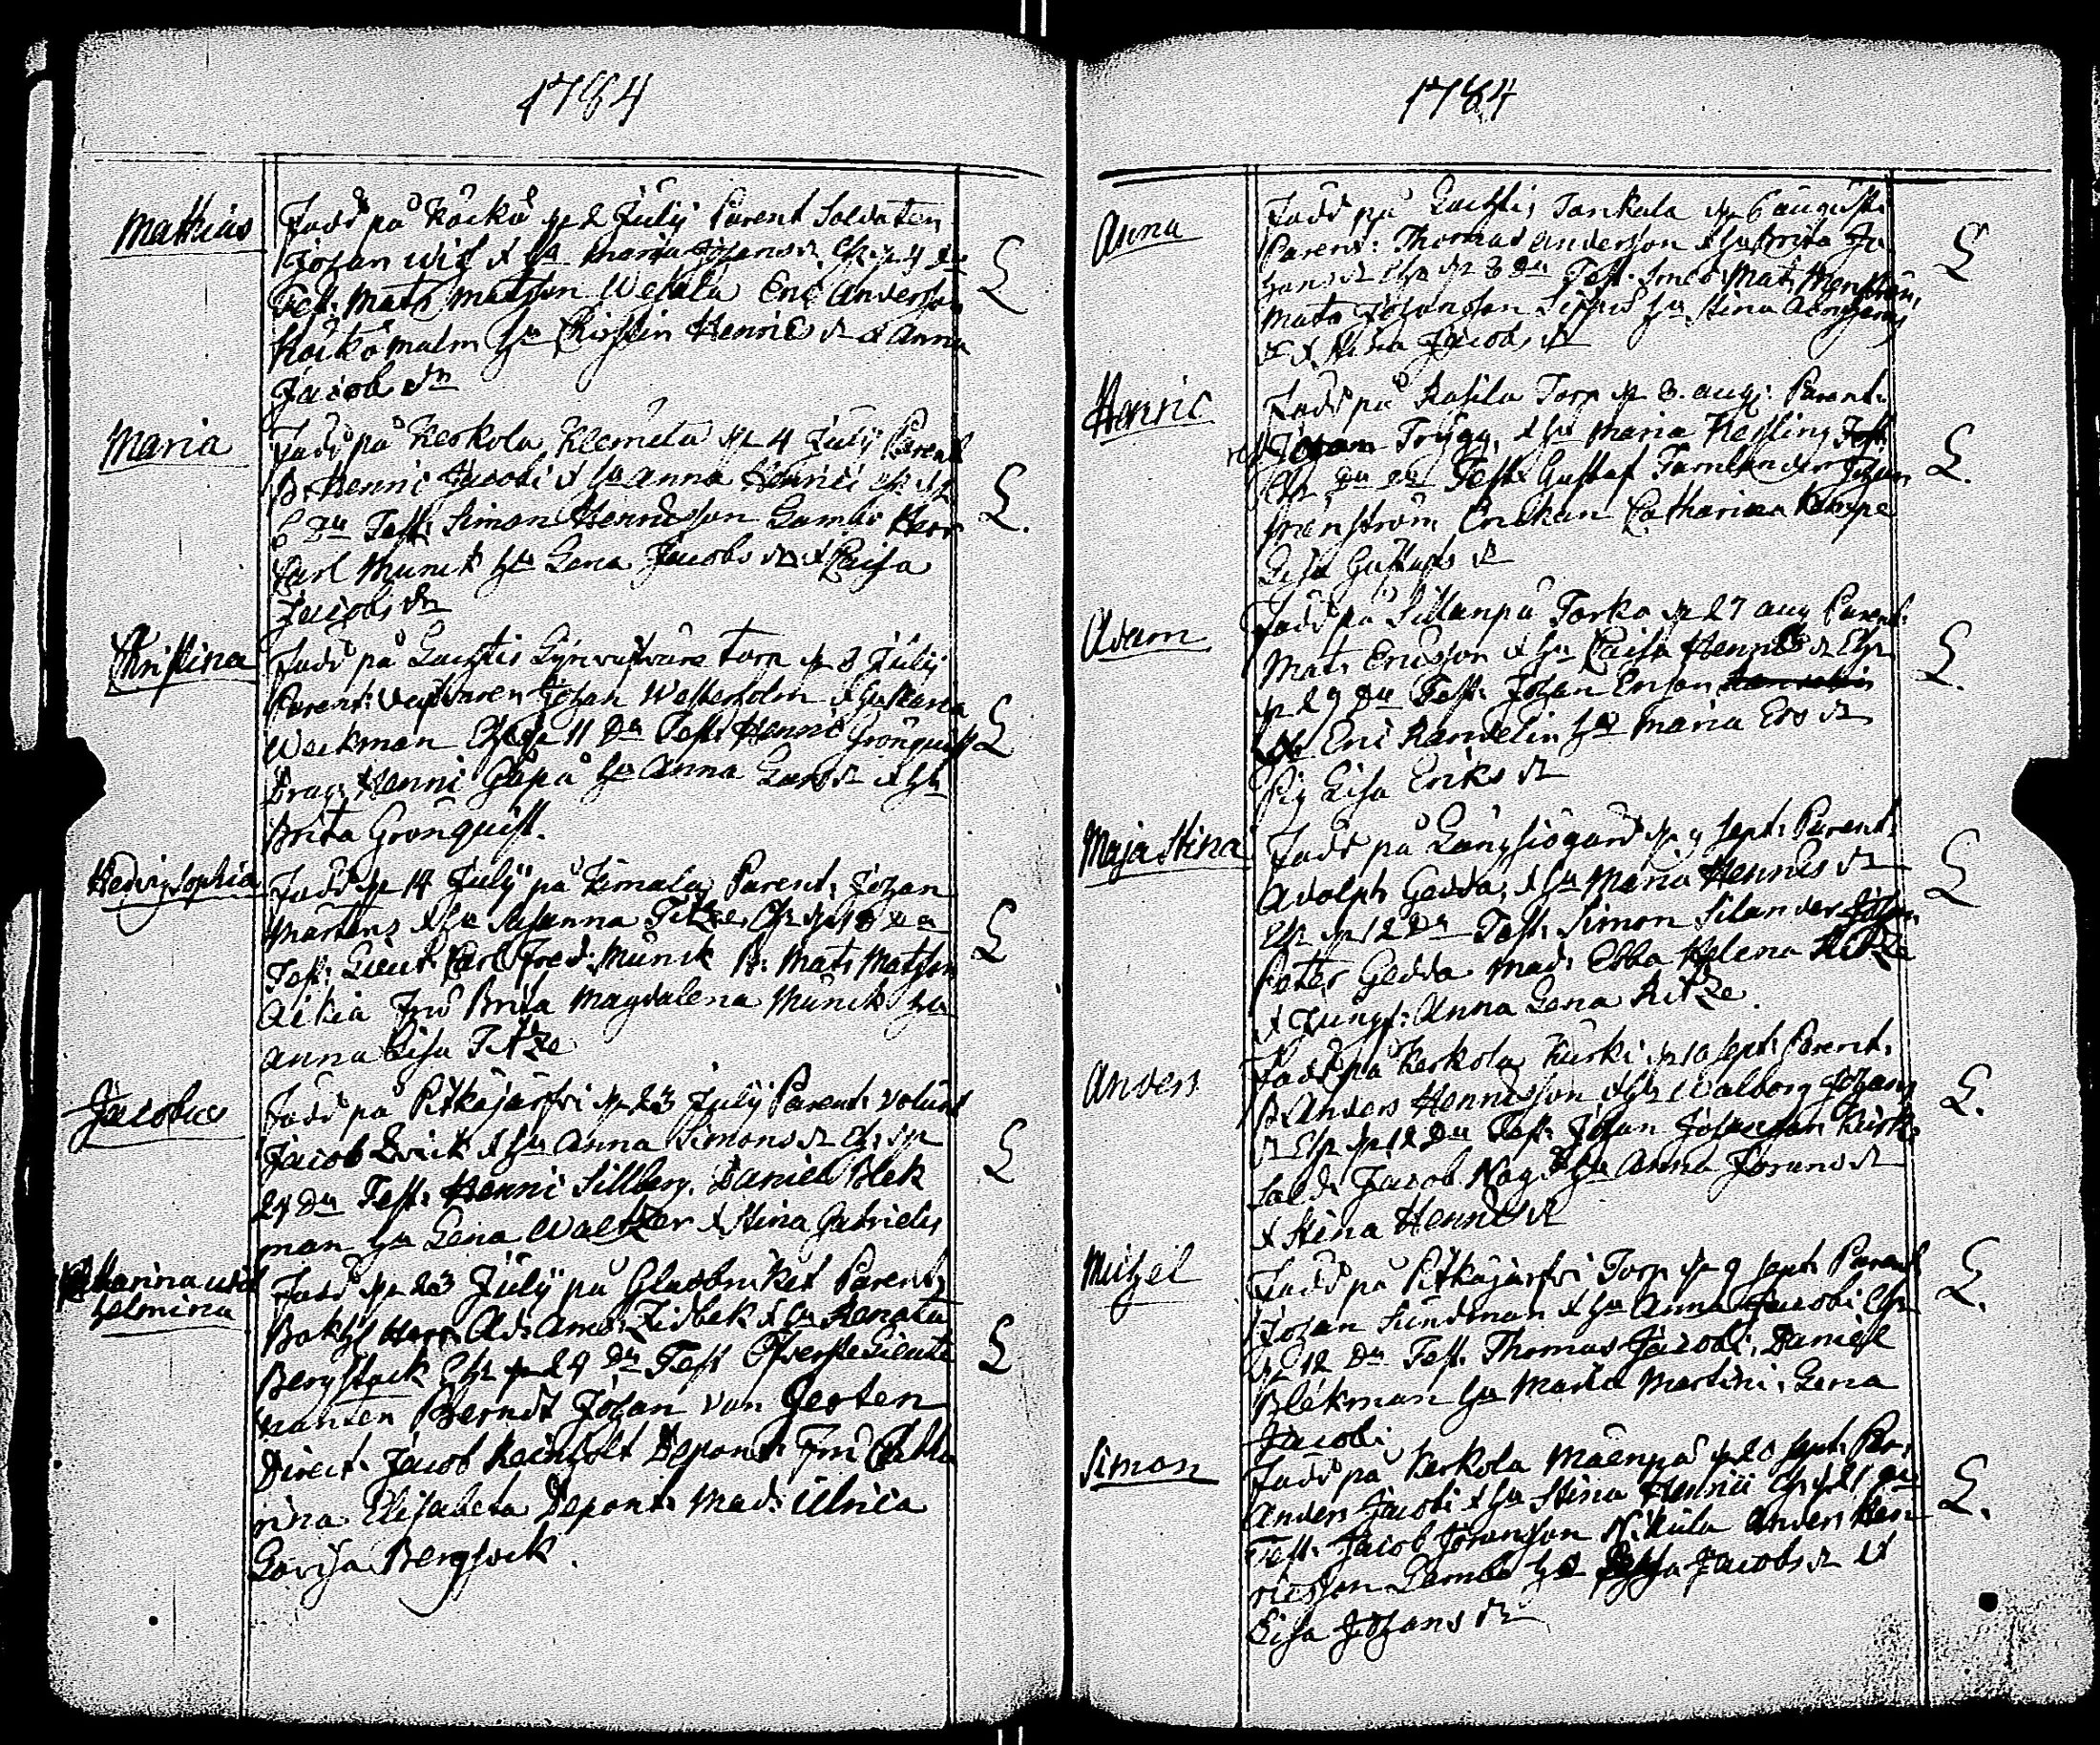 1784
Mathias
Född på Kåckå d 2 July Parent Soldaten
Johan Wis & h. Maria Johans dr Chr d 4 du
Test: Mats Matsson Wekala Eric Andersson
Kåckåmalm h. Christin Henrics dr & Anna
Jacobs dr
Maria
Född på Kerkola Klemeta d 4 July Parent
B. Henric Jacobi & h. Anna Henrici Chr d
6 du Test: Simon Henricsson Lambi Herr
Carl Munck h. Lena Jacobs dr & Caisa
Jacobs dr
Christina
Född på Torp d 8 July
Parent: Johan Westerholm & h. Maria
Weckman Chr d 11 du Test: Henric Grönquist
Drag: Henric Påpå h. Anna Lars dr & h.
Brita Grönquist.
Hedvig Sophia
Född d 14 July på Kimala Parent: Johan
Martens & h. Susanna Titze Chr d 18 du
Test: Lieut: Carl Fred: Munck B: Mats Matsson
Aikia Fru Brita Magdalena Munck h.
Anna Lisa Titze
Jacobus
Född på Pitkäjärfvi d 23 July Parent: Volunt
Jacob Dvik & h. Anna Simons dr Chr d
24 du Test: Henric Sillberg, Daniel Blek
man h. Lena Waltzer & Stina Gabriels
Catharina Wil
helmina
Född d 23 July på Glasbruket Parent:
Bokh Herr Ad: Amb: Zidbek & h. Renata
Bergstock Chr d 29 du Test Öfverste Lieute
nanten Berndt Johan von Gerten
Direct: Jacob Reinholt Depont: Fru Catha
rina Elisabeta Depont: Mad: Ulrica
Lovisa Bergstock.
1784
Anna
Född på Tankala d 6 augusti
Parent: Thomas Anderson & h. Brita Jo
hans dr Chr d 8 du Test: Smed: Mats Wenström,
Mats Johansson h. Stina
& Stina Jacobs dr
Henric
Född på Rasila Torp d 8. aug: Parent:
Johan Trygg, & h. Maria Kessling
Chr du Test: Gustaf Tamlander Johan
Wenström Enckan Catharina Kempe
Lisa Gustafs dr
Adam
Född på Sillanpä Torka d 27 aug Parent:
Mats Ericsson & h. Caisa Henrics dr Chr
d 29 du Test: Johan Erson
Eric Randelin h. Maria Ers dr
Pig Lisa Eriks dr
Maja Stina
Född på Långsiögård d 9 Sept: Parent:
Adolph Gedda, & h. Maria Henrics dr
Chr d 12 du Test: Simon Silander
Peter Gedda Mad: Ebba Helena Ritze
& Jungf: Anna Lena Ritze.
Anders
Född på Kerkola Kurki d 10 Sept: Parent:
B. Anders Henricsson & h. Walborg Johans
dr Chr d 12 du Test: Johan Johansson Kurki
Sold: Jacob Nag & h. Anna Jörans dr
& Stina Henrics dr
Michel
Född på Pitkäjärfvi Torp d 9 Sept: Parent
Johan Sundman & h. Anna Jacobi Chr
d 12 du Test: Thomas Jacobi, Daniel
Blekman h. Maria Martini, Lena
Jacobi
Simon
Född på Kerkola Mäenpä d 20 Sept: Par:
Anders Jacobi & h. Stina Henrici Chr d du
Test: Jacob Jöransson Nikula Anders Hen
ricsson Lambi h. Jacobs dr &
Lisa Johans dr